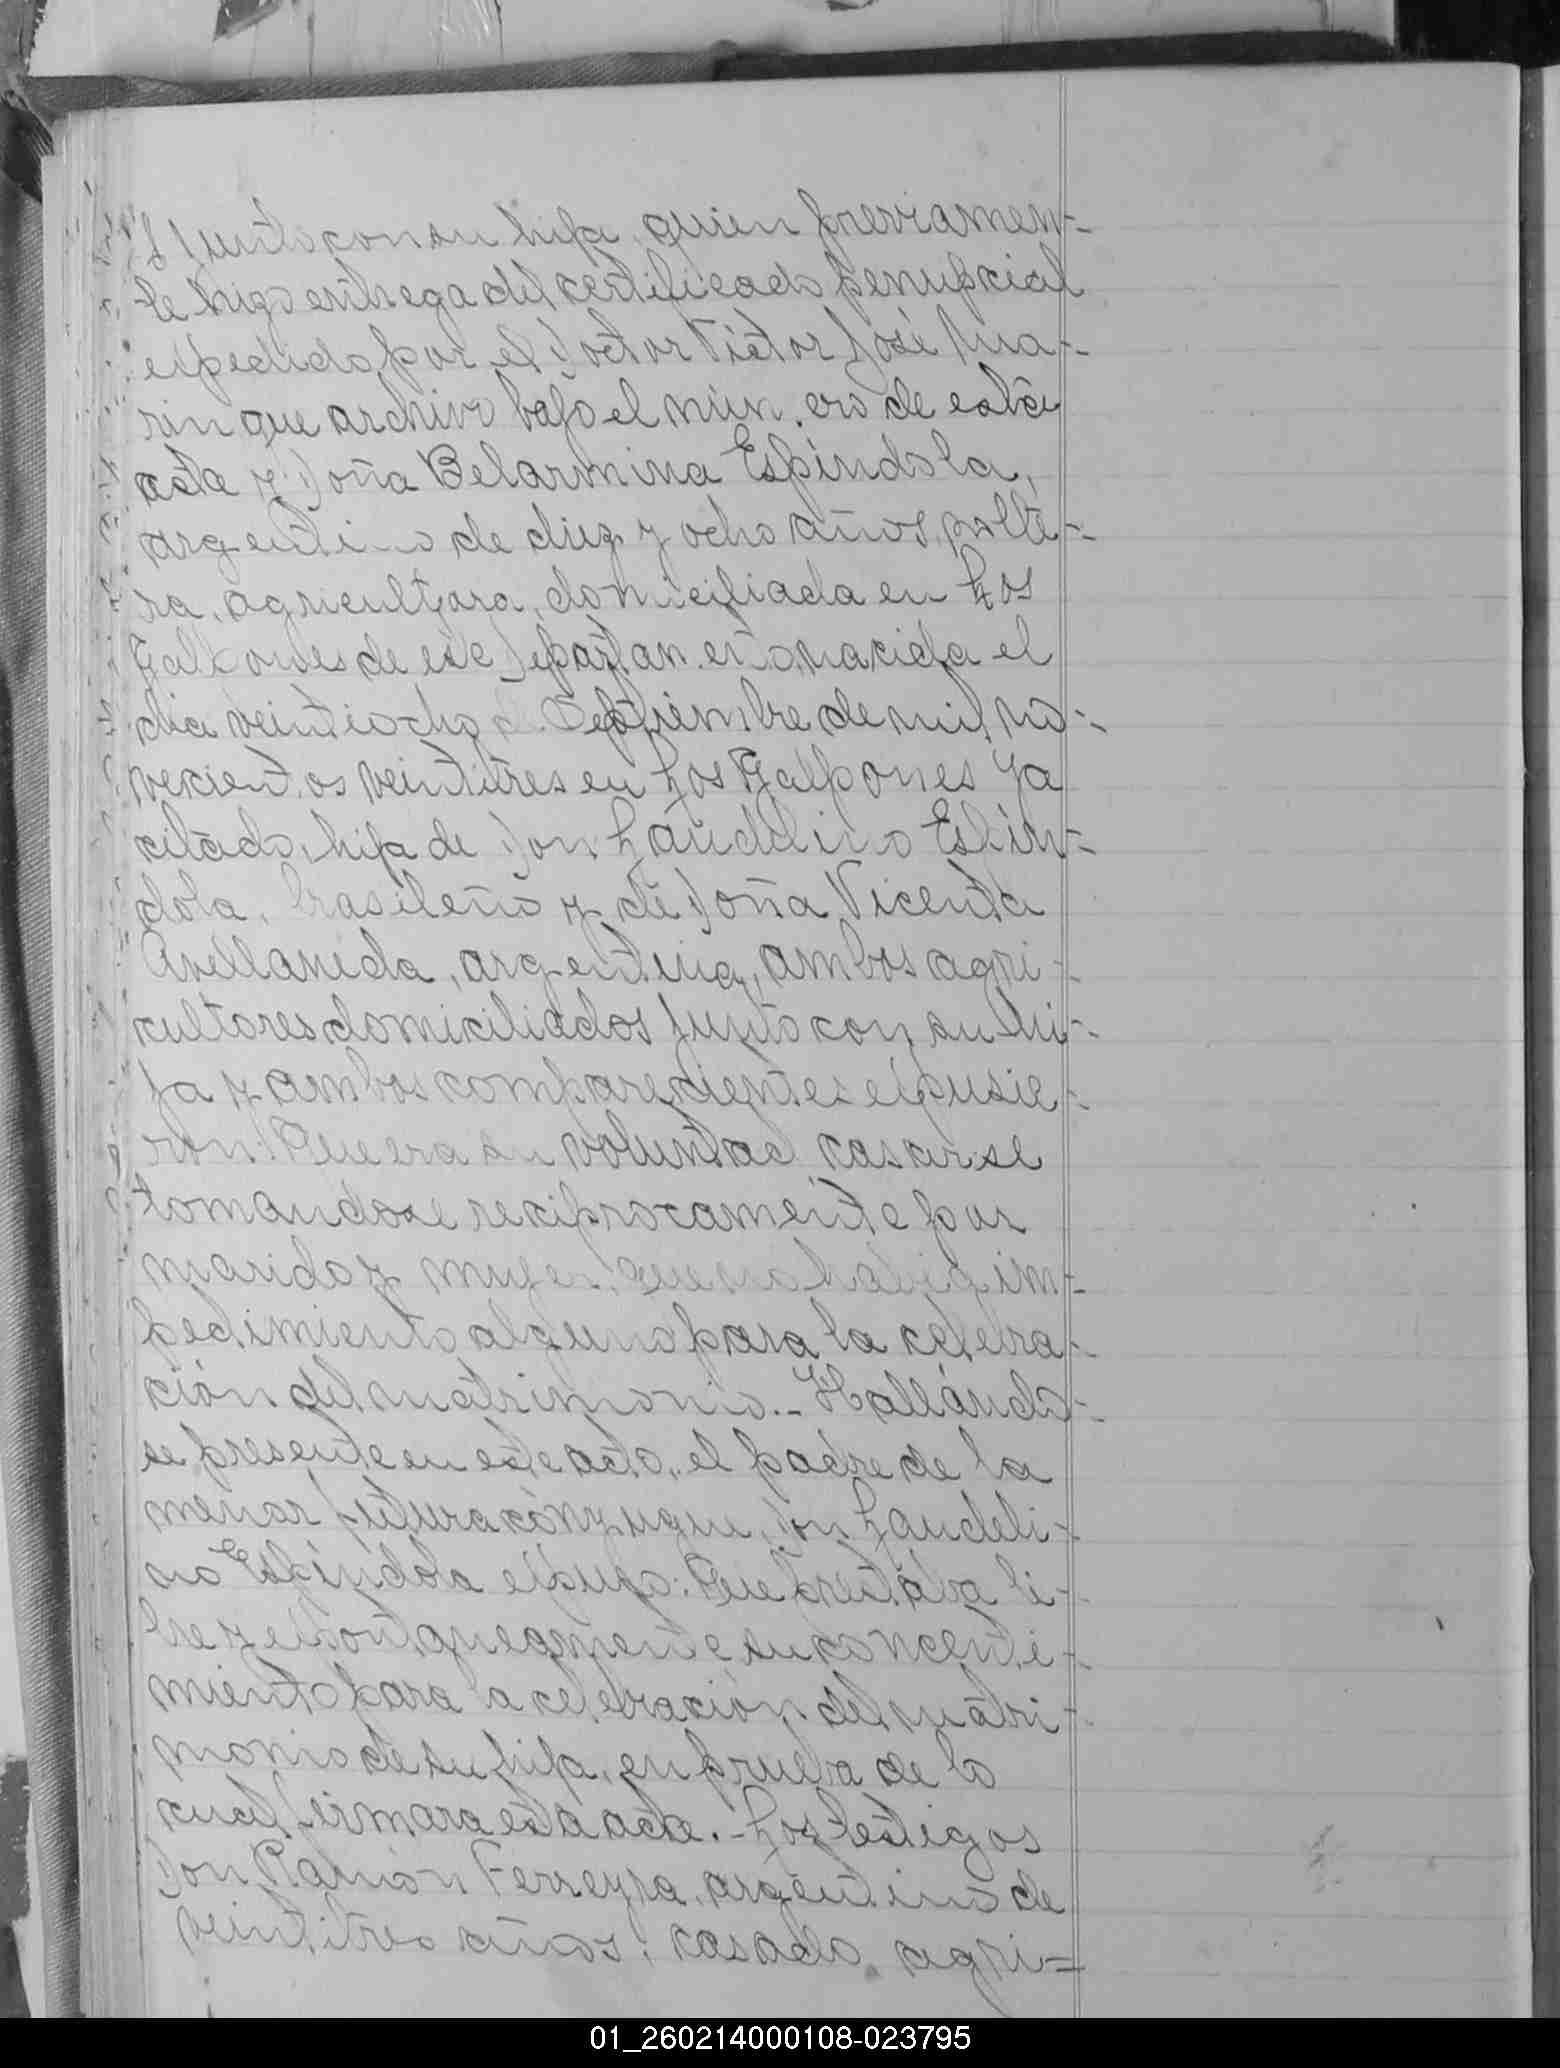 y junto con su hija, quien previamen-
te hizo entrega del certificado penupcial
expedido por el Doctor Victor José Ma-
rin que archivo bajo el número de esta
acta y Doña Belarmina Espíndola,
argentina de diez y ocho años, solte-
ra, agricultora, domiciliada en Los
Galpones de este Departamento nacida el
dia veintiocho de Septiembre de mil no-
vecientos veintitres en Los Galpones ya
citado, hija de Don Laudelino Espín-
dola, brasileño y de Doña Vicenta
Avellaneda, argentina, ambos agri-
cultores domiciliados junto con su hi-
ja y ambos comparecientes expusie-
ron: Que era su voluntad casarse
tomandose reciprocamente por
marido y mujer, que no habia im-
pedimiento alguno para la celebra-
ción del matrimonio.- Hallándo-
se presente en este acto, el padre de la
menor futura cónyugue, Don Laudeli-
no Espíndola expuso: Que prestaba li-
bre y espontaneamente su concenti-
miento para la celebración del matri-
monio de su hija, en prueba de lo
cual firmara esta acta.- Los testigos
Don Ramón Ferreyra, argentino de
veintitres años, casado, agri=
01_260214000108-023795